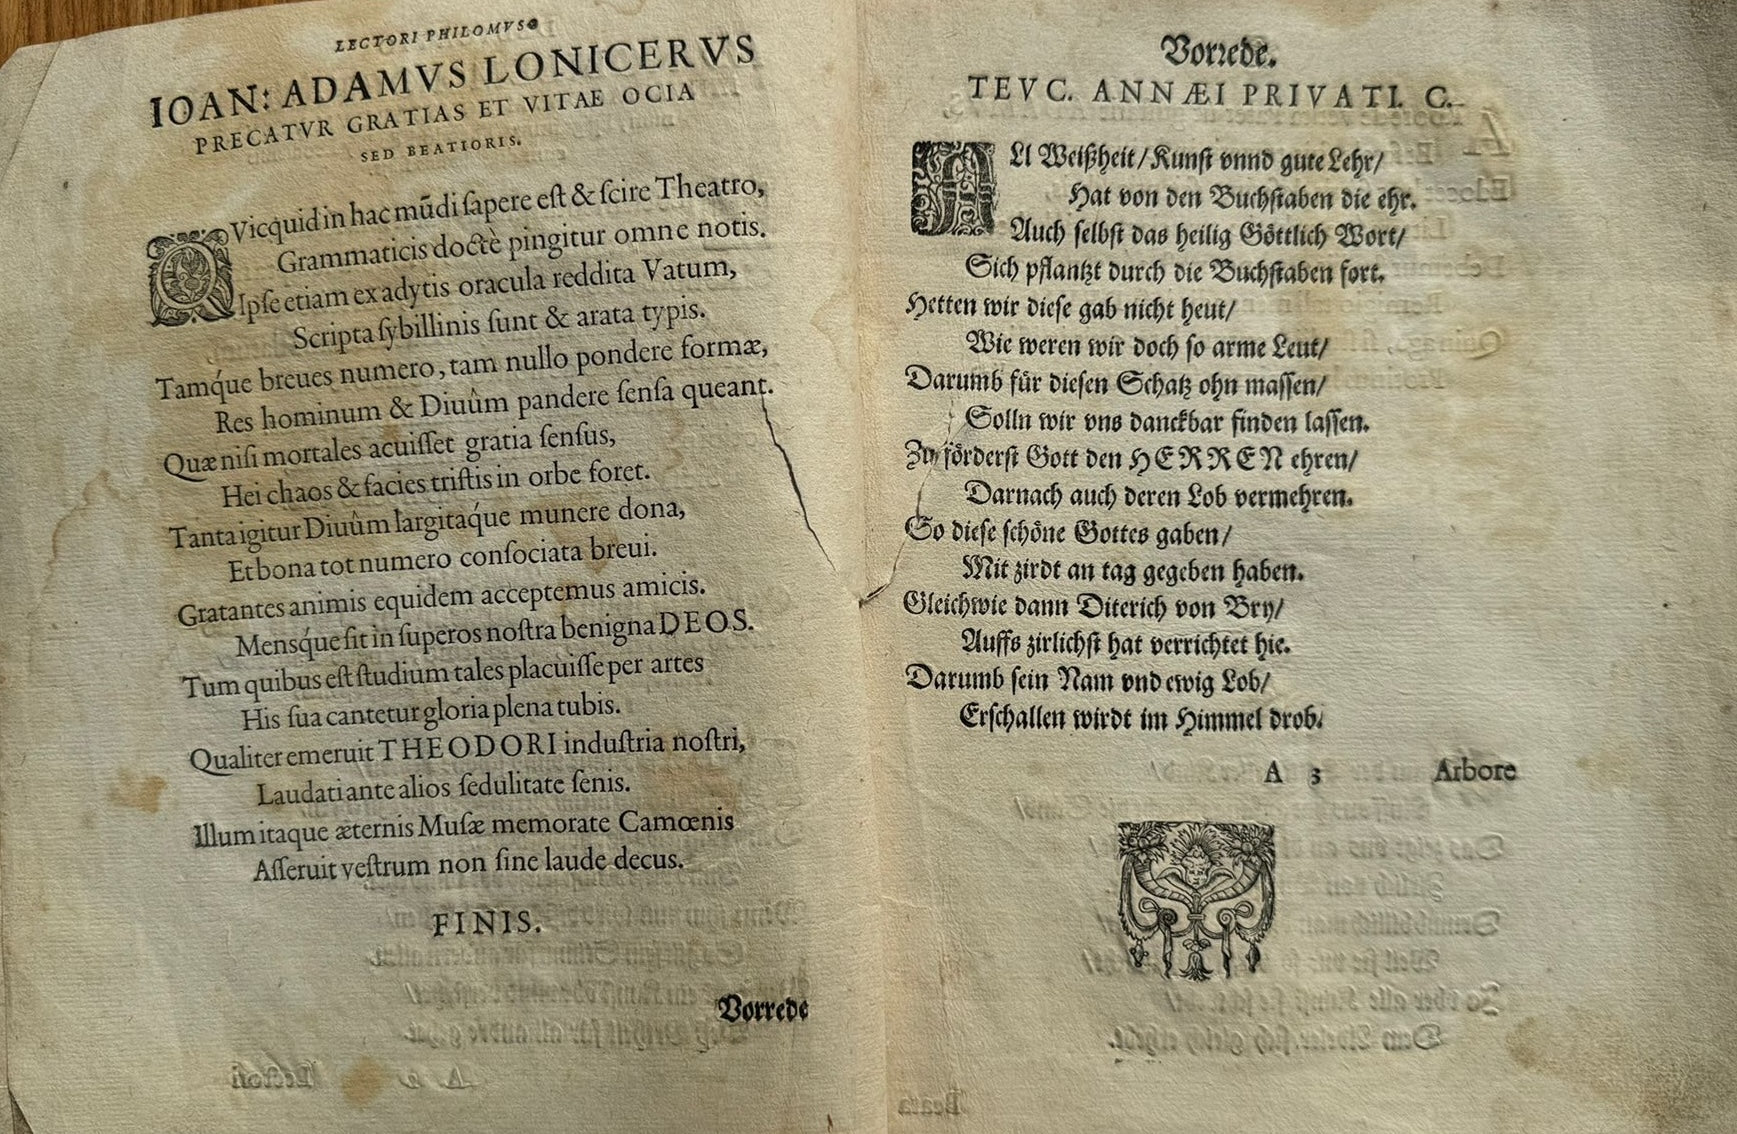 LECTORI PHILOMVSO
IOAN: ADAMVS LONICERVS
PRECATVR GRATIAS ET VITAE OCIA
SED BEATIORIS.
QVicquid in hac mũdi ſapere eſt & ſcire Theatro,
Grammaticis doctè pingitur omne notis.
Ipſe etiam ex adytis oracula reddita Vatum,
Scripta ſybillinis ſunt & arata typis.
Tamq́ue breues numero, tam nullo pondere formæ,
Res hominum & Diuûm pandere ſenſa queant.
Quæ niſi mortales acuiſſet gratia ſenſus,
Hei chaos & facies triſtis in orbe foret.
Tanta igitur Diuûm largitaq́ue munere dona,
Et bona tot numero conſociata breui.
Gratantes animis equidem acceptemus amicis.
Mensq́ue ſit in ſuperos noſtra benigna DEOS.
Tum quibus eſt ſtudium tales placuiſſe per artes
His ſua cantetur gloria plena tubis.
Qualiter emeruit THEODORI induſtria noſtri,
Laudati ante alios ſedulitate ſenis.
Illum itaque æternis Muſæ memorate Camœnis
Aſſeruit veſtrum non ſine laude decus.
FINIS.
Vorrede
Vorrede.
TEVC. ANNÆI PRIVATI. C.
ALl Weißheit/Kunſt vnnd gute Lehr/
Hat von den Buchſtaben die ehr.
Auch ſelbſt das heilig Göttlich Wort/
Sich pflantzt durch die Buchſtaben fort.
Hetten wir dieſe gab nicht heut/
Wie weren wir doch ſo arme Leut/
Darumb für dieſen Schatz ohn maſſen/
Solln wir vns danckbar finden laſſen.
Zu förderſt Gott den HERREN ehren/
Darnach auch deren Lob vermehren.
So dieſe ſchöne Gottes gaben/
Mit zirdt an tag gegeben haben.
Gleichwie dann Diterich von Bry/
Auffs zirlichſt hat verrichtet hie.
Darumb ſein Nam vnd ewig Lob/
Erſchallen wirdt im Himmel drob.
A 3 Arbore